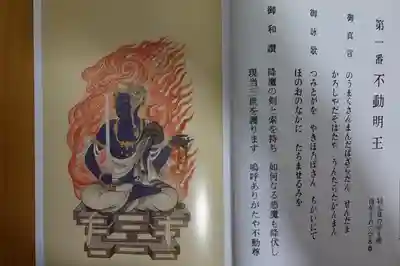 第一番 不動明王
御真言
のうまくさんまんだばざらだん せんだま
かろしゃだそはたや うんたらたかんまん
御詠歌
つみとがを やきほろぼさん ちかいにて
ほのおのなかに たちませるみを
御和讃
降魔の剣と索を持ち 如何なる悪魔も降伏し
現当三世を護ります 嗚呼ありがたや不動尊